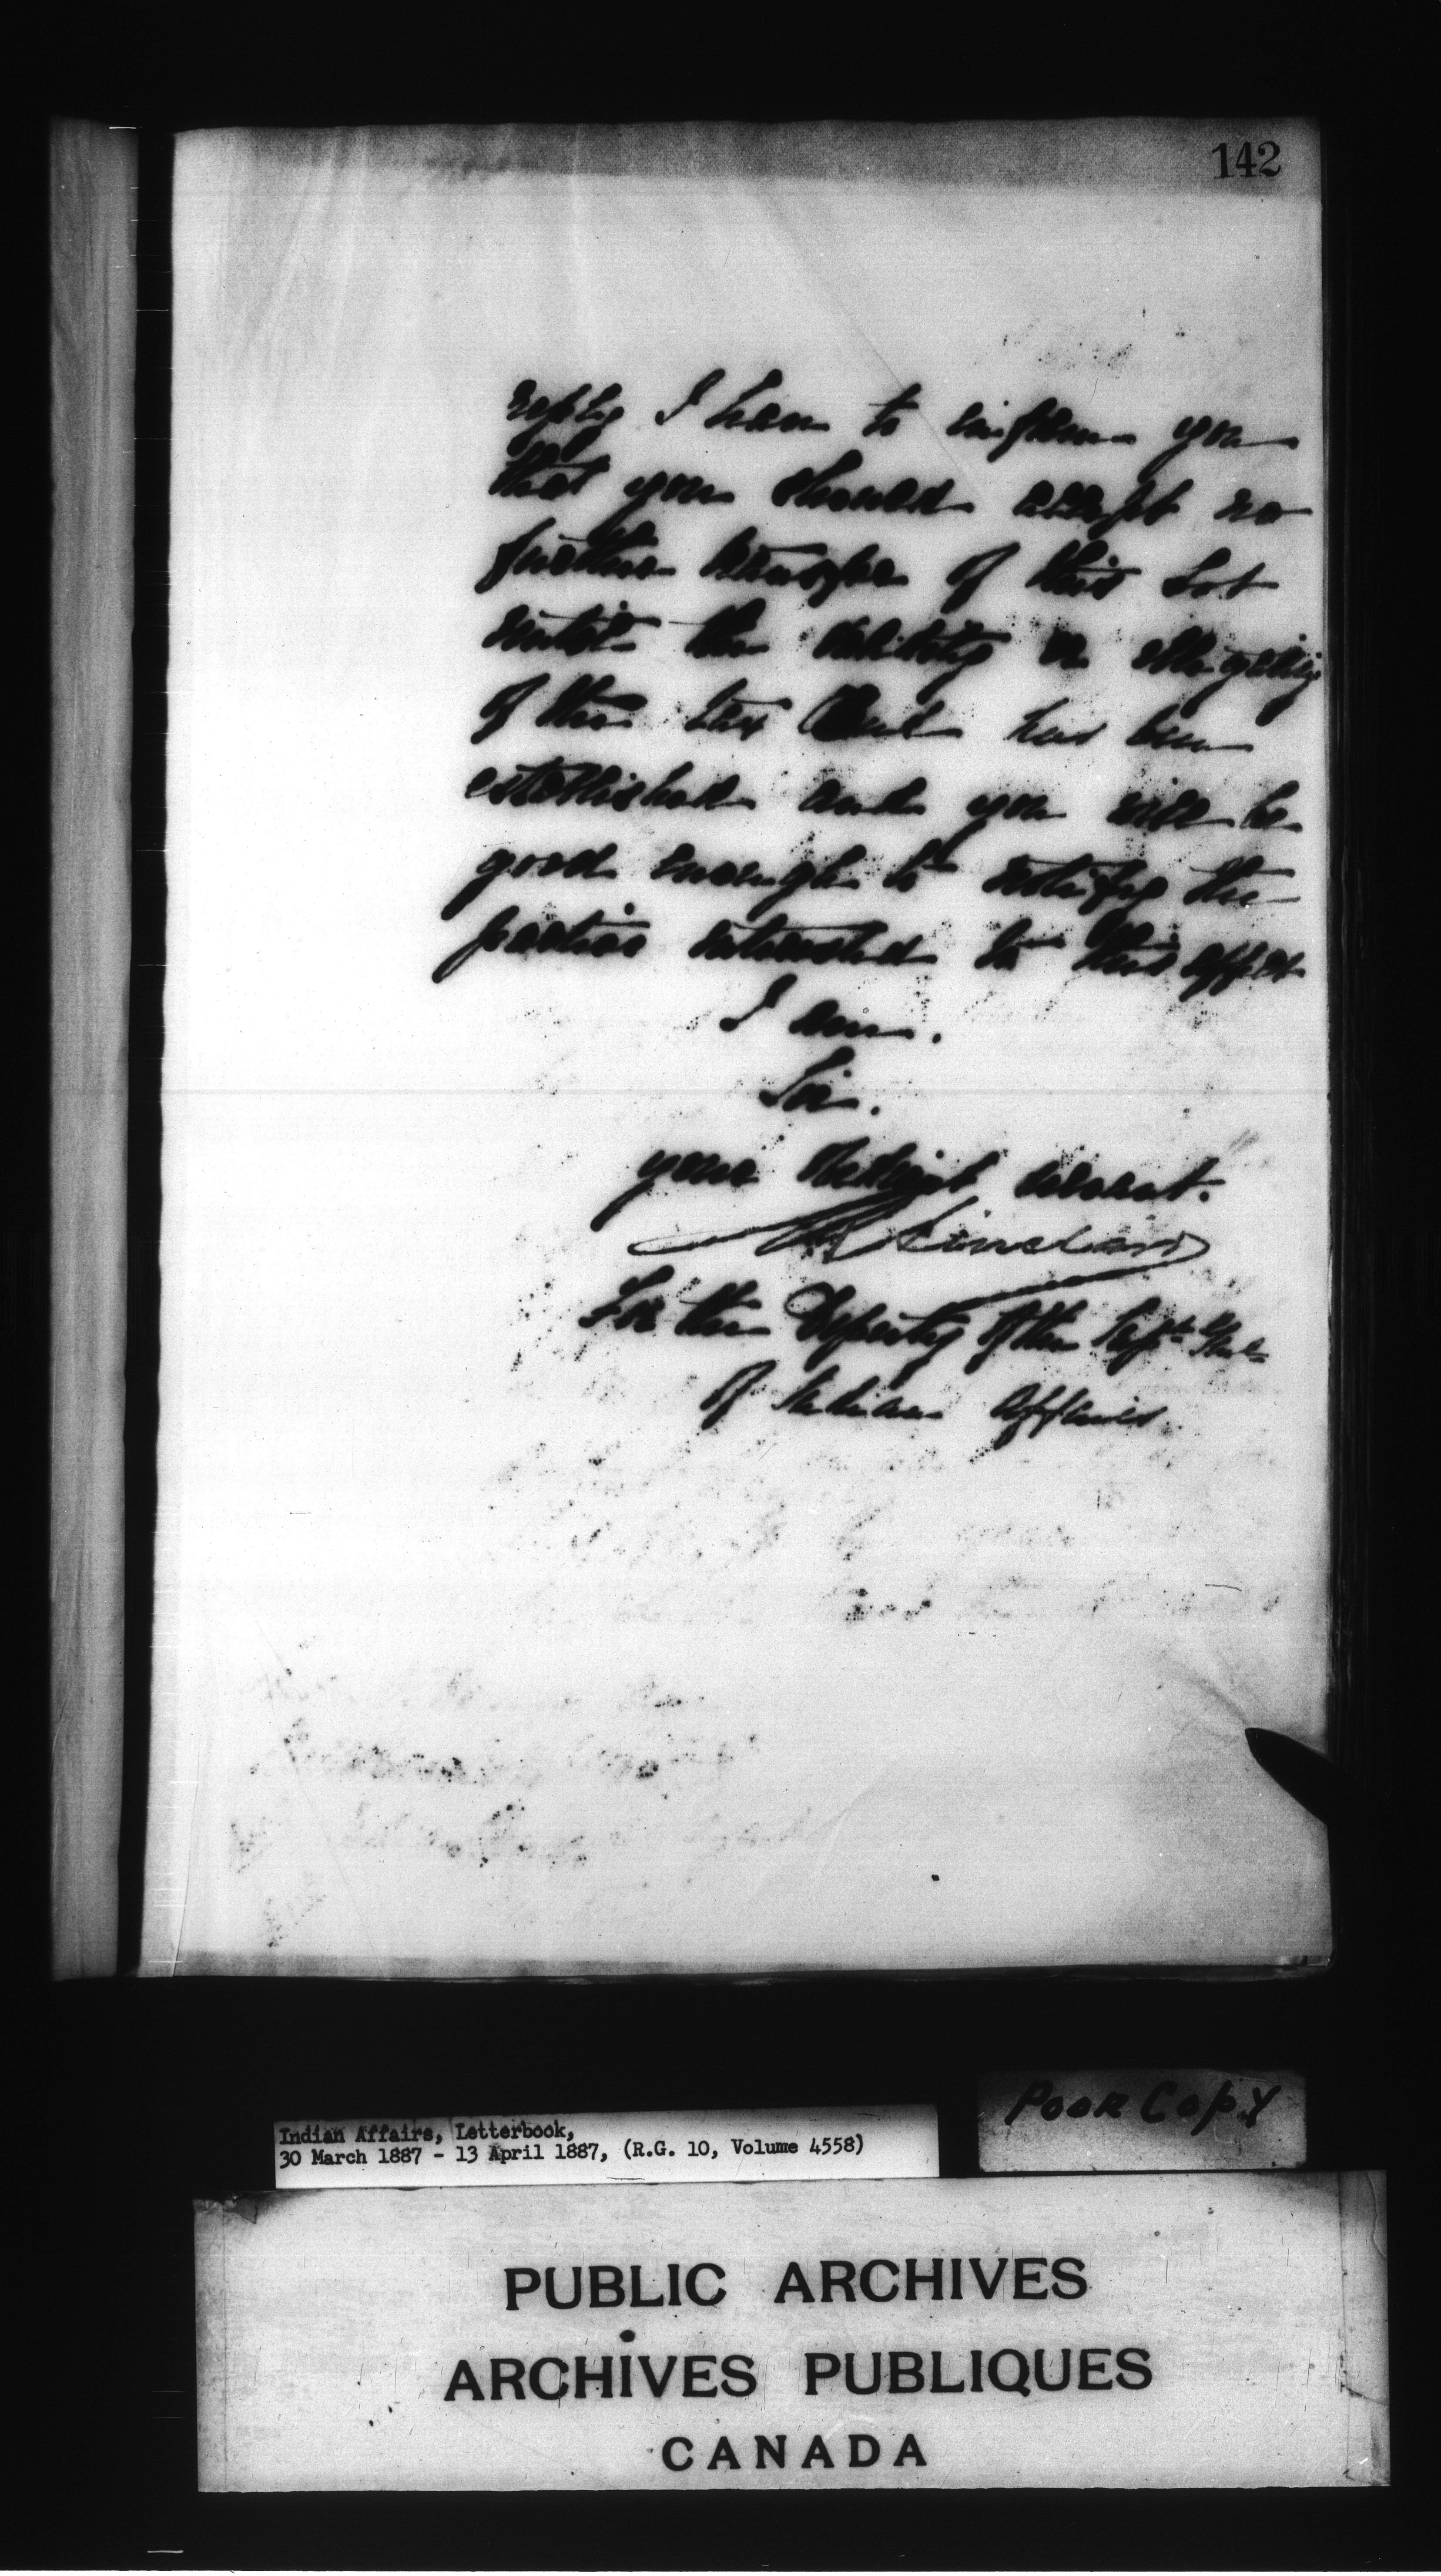 142
reply I have to inform you
that you should accept no
further transfer of this Lot
until the validity or illegality
of the tax Deed has been
established and you will be
good enough to notify the
parties interested to this effect
I am.
Sir.
your obedient servant.
R Sinclair
For the Deputy of the Supt Genl
of Indian Affairs.
POOR COPY
Indian Affairs, Letterbook,
30 March 1887 - 13 April 1887, (R.G. 10, Volume 4558)
PUBLIC ARCHIVES
ARCHIVES PUBLIQUES
CANADA